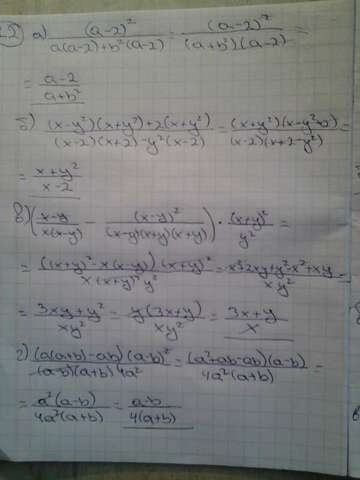 2) а) (a-2)² / (a(a-2)+b²(a-2)) = (a-2)² / ((a+b²)(a-2)) =
= (a-2) / (a+b²)
б) ((x-y²)(x+y²)+2(x+y²)) / ((x-2)(x+2)-y²(x-2)) = ((x+y²)(x-y²+2)) / ((x-2)(x+2-y²))
= (x+y²) / (x-2)
в) ((x-y) / (x(x-y)) - (x-y)² / ((x-y)(x+y)(x+y))) · (x+y)² / y² =
= (((x+y)²-x(x-y))·(x+y)²) / (x(x+y)²y²) = (x²+2xy+y²-x²+xy) / (xy²) =
= (3xy+y²) / (xy²) = (y(3x+y)) / (xy²) = (3x+y) / x
г) ((a(a+b)-ab)(a-b)²) / ((a-b)(a+b)4a²) = ((a²+ab-ab)(a-b)) / (4a²(a+b)) =
= (a²(a-b)) / (4a²(a+b)) = (a-b) / (4(a+b))